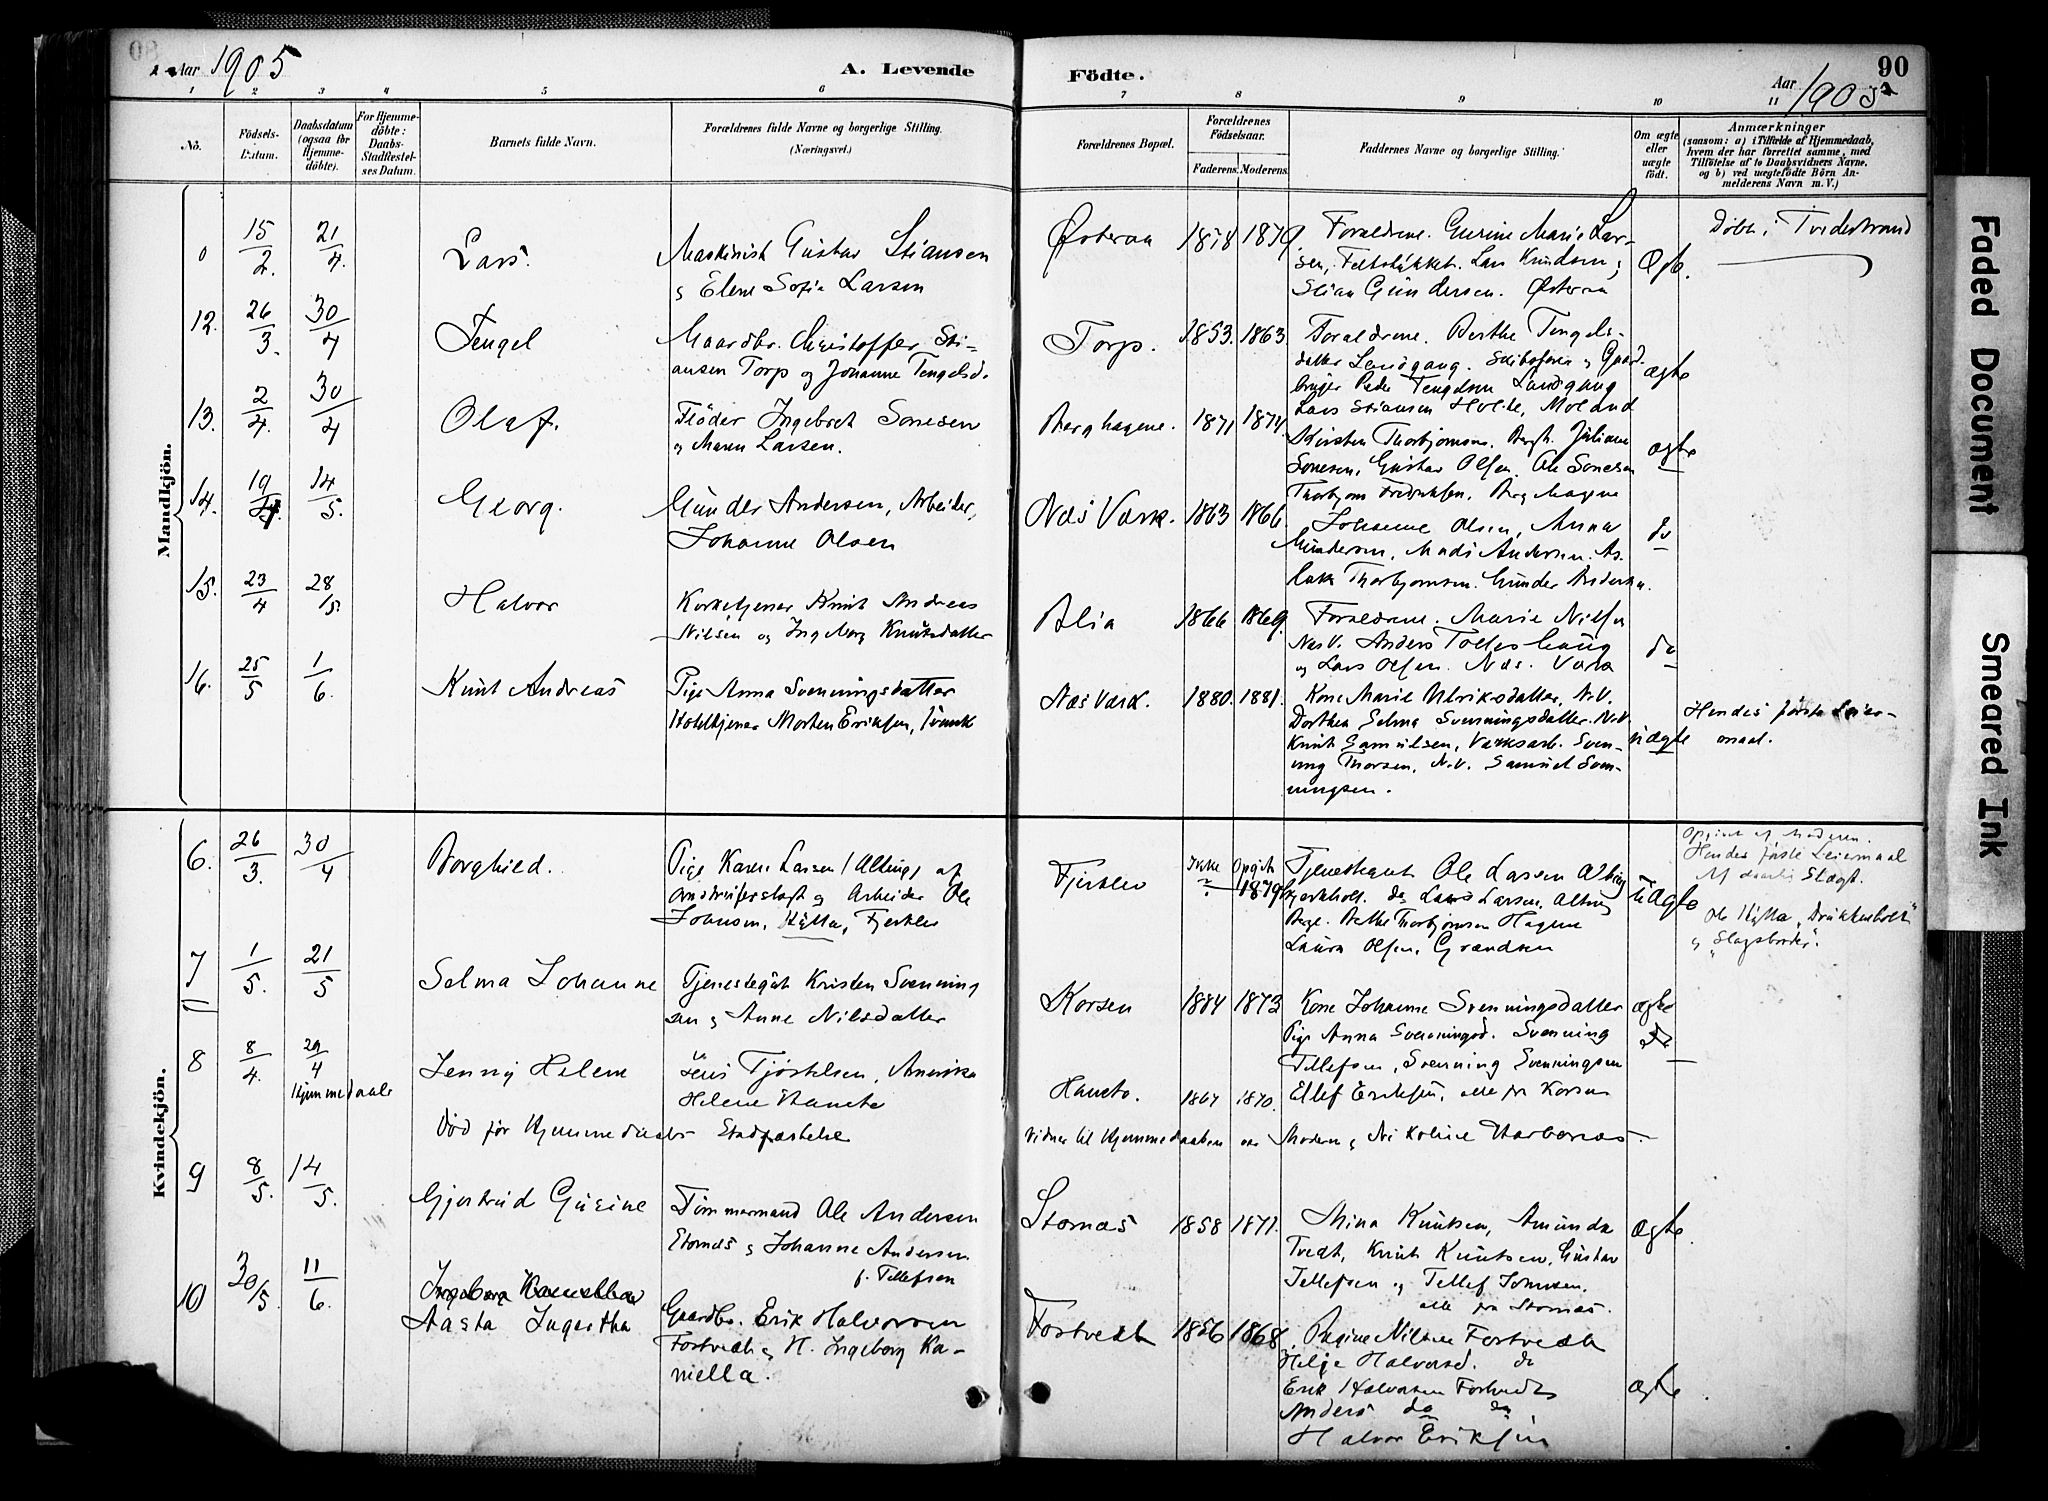 Aar 1905
A. Levende Födte.
90
Aar 1905
1 2 3 4 5 6 7 8 9 10 11
No.
Födsels-Datum.
Daabsdatum (ogsaa for Hjemmedöbte).
For Hjemmedöbte: Daabs-Stadfestelses Datum.
Barnets fulde Navn.
Forældrenes fulde Navne og borgerlige Stilling. (Næringsvei.)
Forældrenes Bopæl.
Forældrenes Födselsaar.
Faderens. Moderens.
Faddernes Navne og borgerlige Stilling.
Om ægte eller uægte födt.
Anmærkninger
(saasom: a) i Tilfælde af Hjemmedaab,
hvem der har forrettet samme, med
Tilföielse af to Daabsvidners Navne,
og b) ved uægtefödte Börn Anmelderens Navn m. V.)
Mandkjön.
15/2 21/4 Lars. Maskinist Gustav Stiansen
og Elene Sofie Larsen
Østeraa 1878 1879 Forældrene. Gurine Marie Larsen, Lars Knudsen,
Stian Gundersen. Østeraa
Døbt i Tvedestrand
12. 26/3 30/4 Tengel Gaardbr. Christoffer Stiansen Torp og Johanne Tengelsd.
Torp. 1853. 1863 Forældrene. Berthe Tengelsdatter Landgang. og Gaardbruger Peder Tengelsen Landgang
Lars Stiansen Holte, Moland
ægte
13. 2/4 30/4 Olaf. Fløder Ingebret Sonesen
og Maren Larsen.
Berghagene. 1871 1874. Kirsten Thorbjornsen. Bergh. Juliane
Sonesen, Gustav Olsen, Ole Sonesen
Thorbjorn Fredriksen. Berghagene
ægte
14. 19/4 14/5 Georg. Gunder Andersen, Arbeider,
Johanne Olsen
Næs Værk. 1863 1866 Johanne Olsen, Anna
Gundersen, Mads Andersen. As-
lak Thorbjornsen. Gunder Andersen.
do
15. 23/4 28/5 Halvor Kirketjener Knut Andreas
Nilsen og Ingeborg Knutsdatter
Blia 1866 1869. Forældrene. Marie Nilsen
Næs V. Anders
og Lars Olsen. Næs Værk
do
16. 25/5 1/6. Knut Andreas Pige Anna Svenningsdatter
Hoteltjener Morten Eriksen,
Næs Værk. 1880. 1881. Kone Marie Ulriksdatter, N.V.
Dorthea Selma Svenningsdatter. N.V.
Knut Samuelsen, Værksarb. Sven-
ning Thorsen, N.V. Samuel Sven-
ningsen.
uægte
Hendes første Leier-
maal.
Kvindekjön.
6. 26/3. 30/4 Borghild. Pige Karen Larsen af
og Arbeider Ole
Johnsen, Hytta, Fjerklev
Fjerklev Ikke Opgit 1879 Tjenestegut Ole Larsen
Lars Larsen,
Thorbjornsen Hagene
Laura Olsen,
uægte
Opgivet af Moderen.
Hendes første Leiermaal
Af daarlig Slægt.
Ole Hytta "Drukkenbolt"
og "Slagsbroder".
7 1/5. 21/5 Selma Johanne Tjenestegut Kristen Svenning
sen og Anne Nilsdatter
Korsen 1884 1873 Kone Johanne Svenningsdatter
Pige Anna Svenningsd. Svenning
Tellefsen, Svenning Svenningsen
Ellef Eriksen, alle fra Korsen
ægte
8 8/4. 29/4 Hjemmedaab Jenny Helene Jens Tjøstelsen, Amerika
Helene Haneto
Død før Hjemmedaabs Stadfæstelse
Haneto. 1867 1870.
do
Vidner til Hjemmedaaben var Moderen og Nikoline
9 8/5. 14/5. Gjertrud Gusine Tømmermand Ole Andersen
Stornæs og Johanne Andersen
f. Tellefsen
Stornæs 1858 1871. Mina Knutsen, Amunda
Tvedt, Knut Knutsen, Gustav
Tellefsen og Tellef Johnsen.
alle fra Stornæs.
ægte.
10 30/5 11/6. Ingeborg Kamella
Aasta Ingertha
Gaardbr. Erik Halvorsen
Fostvedt og H. Ingeborg Ka-
mella.
Fostvedt 1856 1868. Regine Nilsen Fostvedt
Helje Halvorsd. do
Erik Halvorsen Fostvedt
Anders do do
Halvor Eriksen
ægte
Faded Document
Smeared Ink